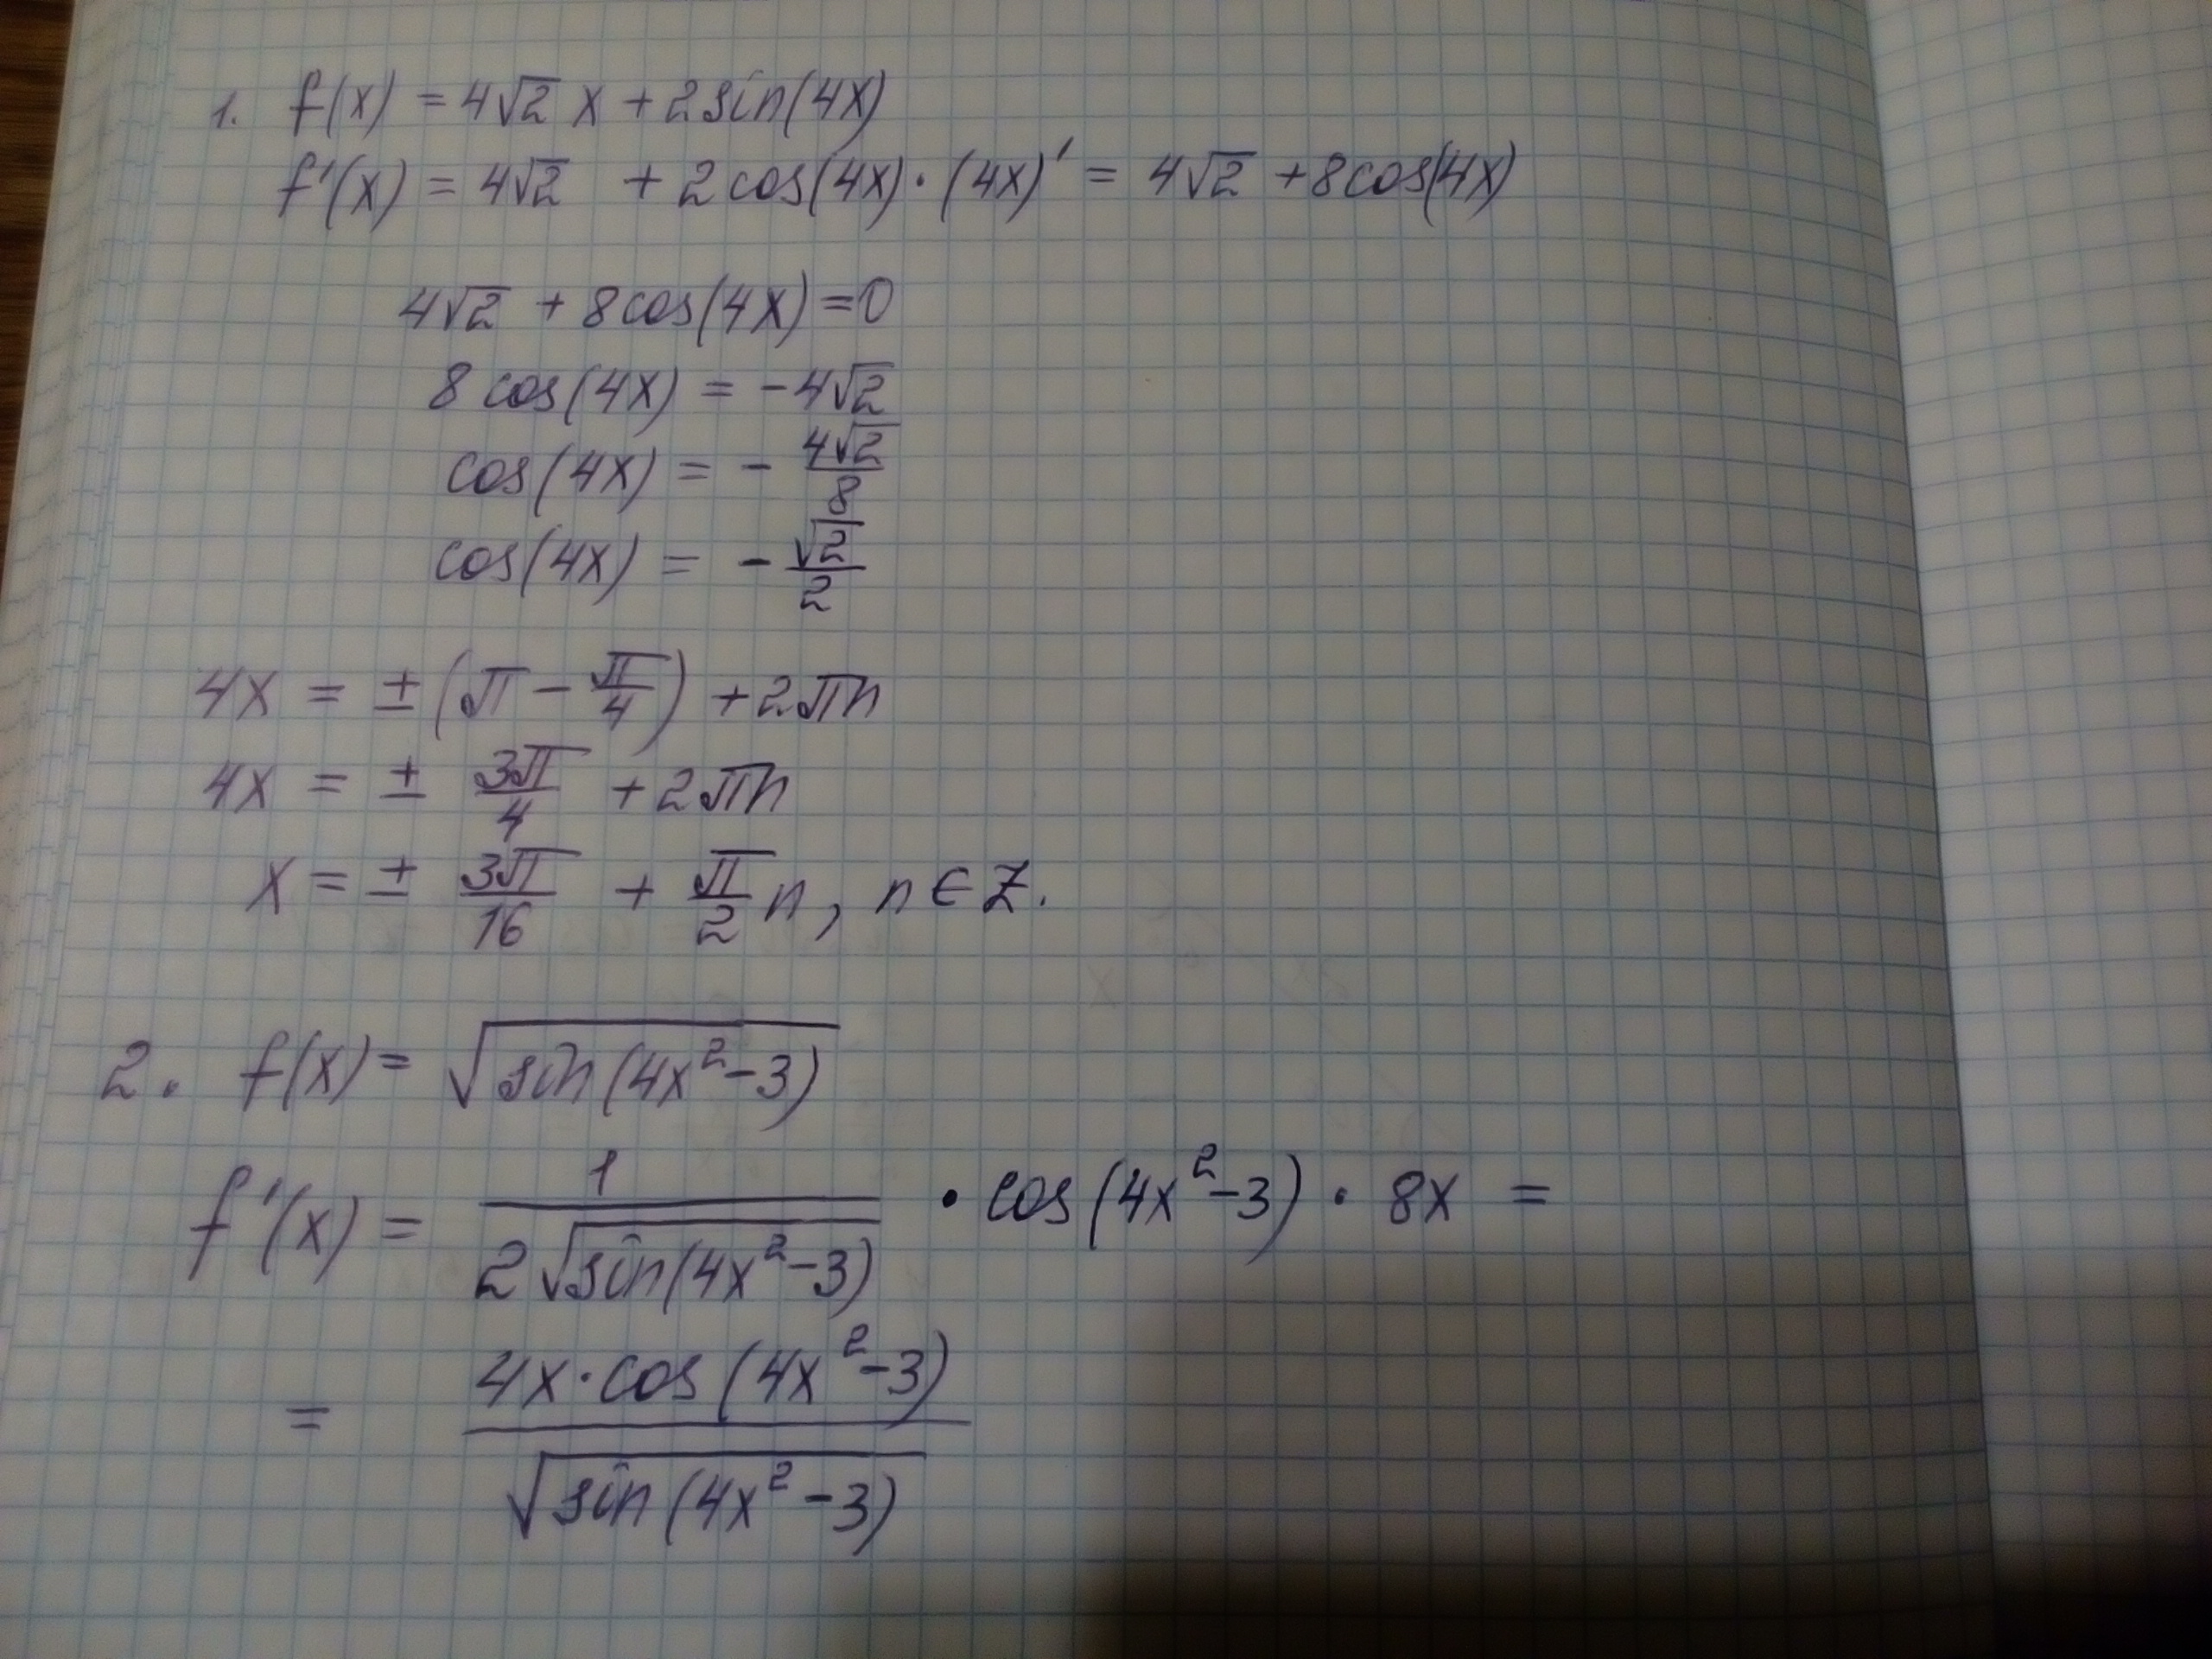 1. f(x) = 4√2 x + 2sin(4x)
f'(x) = 4√2 + 2cos(4x)·(4x)' = 4√2 + 8cos(4x)
4√2 + 8cos(4x) = 0
8 cos(4x) = -4√2
cos(4x) = - 4√2/8
cos(4x) = - √2/2
4x = ±(π - π/4) + 2πn
4x = ± 3π/4 + 2πn
x = ± 3π/16 + π/2 n, n ∈ Z.
2. f(x) = √(sin(4x²-3))
f'(x) = 1/(2√(sin(4x²-3))) · cos(4x²-3) · 8x =
= (4x·cos(4x²-3))/√(sin(4x²-3))